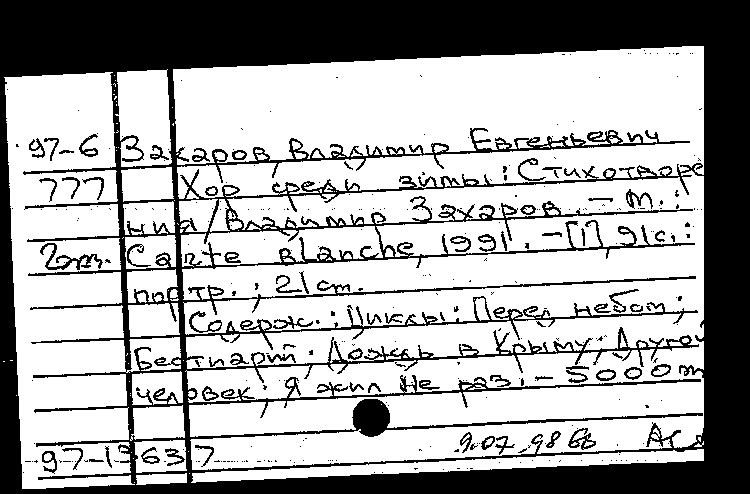 97-6 Захаров, Владимир Евгеньевич
777 Хор среди зимы: Стихотворе
ния/Владимир Захаров. - М.:
2эт. Carte blanche, 1991. - [1], 91 с.:
портр.; 21 cm.
Содерж.: Циклы: Перед небом;
Бестиарий; Дождь в Крыму; Другой
человек; Я жил не раз. - 5000
97-13637 9.07.98